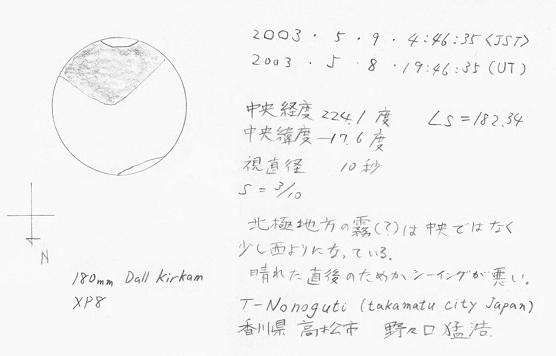 2003・5・9・4:46:35<JST>
2003・5・8・19:46:35(UT)
中央経度 224.1 度 Ls=182.34
中央緯度 -17.6 度
視直径 10秒
S=3/10
北極地方の霧(?)は中央ではなく
少し西よりになっている.
晴れた直後のためかシーイングが悪い.
T-Nonoguti (takamatu city Japan)
香川県 高松市 野々口猛浩
N
180mm Dall Kirkam
XP8